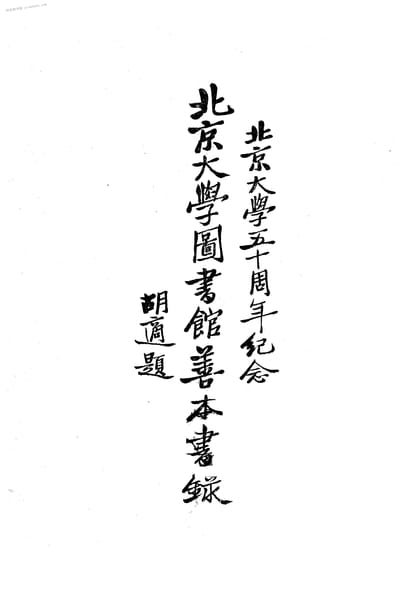 北京大學五十周年紀念
北京大學圖書館善本書錄
胡適題